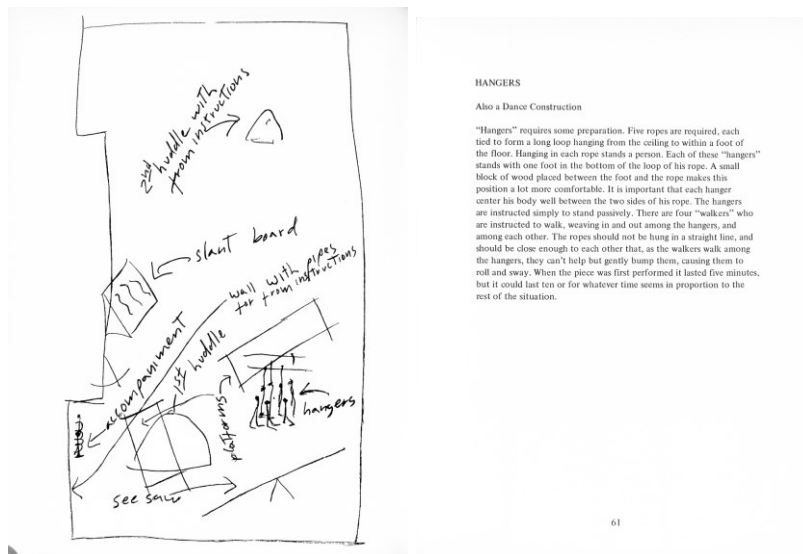 2nd
huddle with
from instructions
slant board
wall with pipes
for from instructions
accompaniment
1st huddle
platforms
hangers
see saw
HANGERS
Also a Dance Construction
“Hangers” requires some preparation. Five ropes are required, each
tied to form a long loop hanging from the ceiling to within a foot of
the floor. Hanging in each rope stands a person. Each of these “hangers”
stands with one foot in the bottom of the loop of his rope. A small
block of wood placed between the foot and the rope makes this
position a lot more comfortable. It is important that each hanger
center his body well between the two sides of his rope. The hangers
are instructed simply to stand passively. There are four “walkers” who
are instructed to walk, weaving in and out among the hangers, and
among each other. The ropes should not be hung in a straight line, and
should be close enough to each other that, as the walkers walk among
the hangers, they can’t help but gently bump them, causing them to
roll and sway. When the piece was first performed it lasted five minutes,
but it could last ten or for whatever time seems in proportion to the
rest of the situation.
61